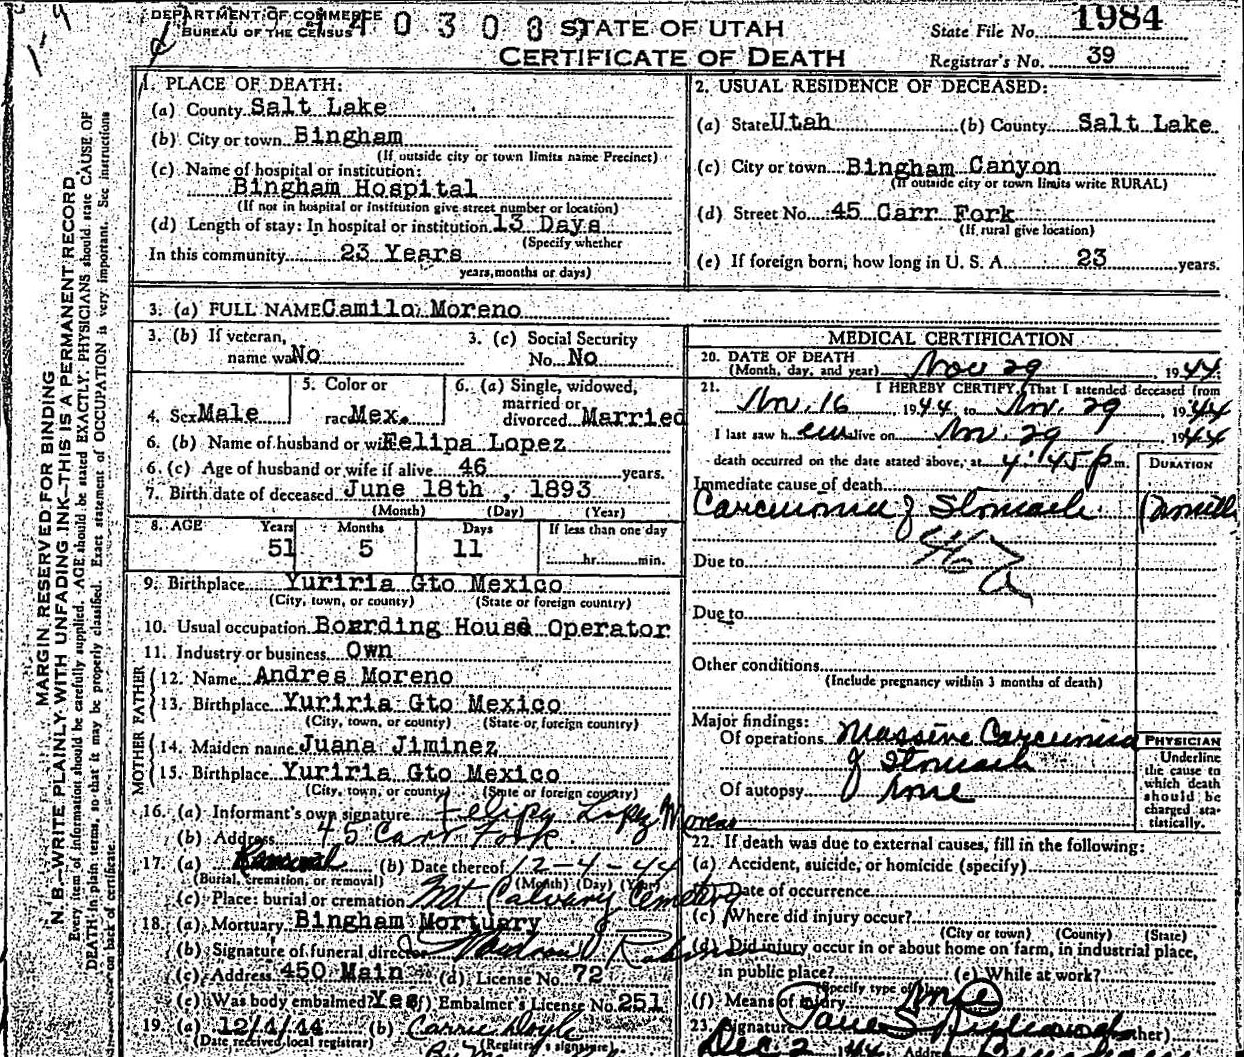 DEPARTMENT OF COMMERCE
BUREAU OF THE CENSUS
STATE OF UTAH
CERTIFICATE OF DEATH
State File No. 1984
Registrar's No. 39
MARGIN RESERVED FOR BINDING
N. B.—WRITE PLAINLY WITH UNFADING INK—THIS IS A PERMANENT RECORD
Every item of information should be carefully supplied. AGE should be stated EXACTLY. PHYSICIANS should state CAUSE OF
DEATH in plain terms, so that it may be properly classified. Exact statement of OCCUPATION is very important. See instructions
on back of certificate.
1. PLACE OF DEATH:
(a) County Salt Lake
(b) City or town Bingham
(If outside city or town limits name Precinct)
(c) Name of hospital or institution:
Bingham Hospital
(If not in hospital or institution give street number or location)
(d) Length of stay: In hospital or institution 13 Days
(Specify whether
In this community 23 Years
years, months or days)
2. USUAL RESIDENCE OF DECEASED:
(a) State Utah (b) County Salt Lake
(c) City or town Bingham Canyon
(If outside city or town limits write RURAL)
(d) Street No. 45 Carr Fork
(If rural give location)
(e) If foreign born, how long in U. S. A. 23 years.
3. (a) FULL NAME Camilo Moreno
3. (b) If veteran, 3. (c) Social Security
name war No No. No
4. Sex Male
5. Color or
race Mex.
6. (a) Single, widowed,
married or
divorced Married
6. (b) Name of husband or wife Felipa Lopez
6. (c) Age of husband or wife if alive 46 years.
7. Birth date of deceased June 18th, 1893
(Month) (Day) (Year)
8. AGE Years Months Days If less than one day
51 5 11 hr. min.
9. Birthplace Yuriria Gto Mexico
(City, town, or county) (State or foreign country)
10. Usual occupation Boarding House Operator
11. Industry or business Own
FATHER
12. Name Andres Moreno
13. Birthplace Yuriria Gto Mexico
(City, town, or county) (State or foreign country)
MOTHER
14. Maiden name Juana Jiminez
15. Birthplace Yuriria Gto Mexico
(City, town, or county) (State or foreign country)
16. (a) Informant's own signature Felipa Lopez Moreno
(b) Address 45 Carr Fork
17. (a) Removal (b) Date thereof 12-4-44
(Burial, cremation, or removal) (Month) (Day) (Year)
(c) Place: burial or cremation Mt Calvary Cemetery
18. (a) Mortuary Bingham Mortuary
(b) Signature of funeral director
(c) Address 450 Main (d) License No. 72
(e) Was body embalmed? Yes (f) Embalmer's License No. 251
19. (a) 12/4/44 (b) Carrie Doyle
(Date received local registrar) (Registrar's signature)
MEDICAL CERTIFICATION
20. DATE OF DEATH
(Month, day, and year) Nov 29, 1944.
21. I HEREBY CERTIFY, That I attended deceased from
Nov. 16, 1944, to Nov. 29, 1944
I last saw him alive on Nov. 29 1944
death occurred on the date stated above, at 4:45 p m.
DURATION
Immediate cause of death
Carcinoma of Stomach
Due to
Due to
Other conditions
(Include pregnancy within 3 months of death)
Major findings:
Of operations Massive Carcinoma
of Stomach
Of autopsy None
PHYSICIAN
Underline
the cause to
which death
should be
charged sta-
tistically.
22. If death was due to external causes, fill in the following:
(a) Accident, suicide, or homicide (specify)
(b) Date of occurrence
(c) Where did injury occur?
(City or town) (County) (State)
(d) Did injury occur in or about home on farm, in industrial place,
in public place? (e) While at work?
(Specify type of place)
(f) Means of injury None
23. Signature
Dec 2 44 Address